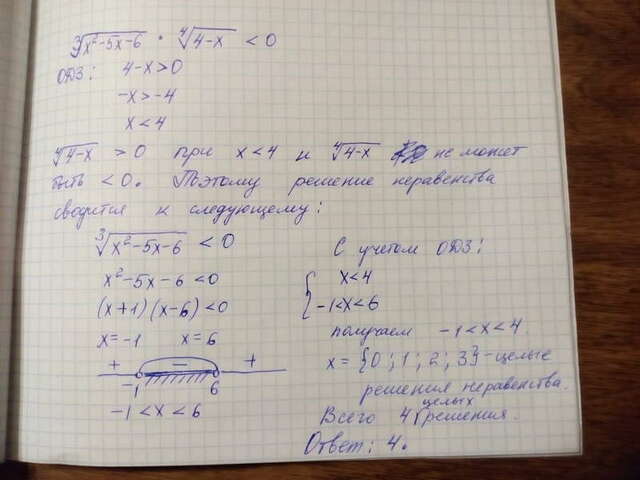 ∛(x²-5x-6) · ∜(4-x) < 0
ОДЗ: 4-x>0
-x>-4
x<4
∜(4-x) > 0 при x<4 и ∜(4-x) не может
быть <0. Поэтому решение неравенства
сводится к следующему:
∛(x²-5x-6) < 0
x²-5x-6<0
(x+1)(x-6)<0
x=-1 x=6
+ - +
-1 6
-1<x<6
С учетом ОДЗ:
{ x<4
-1<x<6
получаем -1<x<4
x={0;1;2;3}-целые
решения неравенства.
Всего 4 целых решения.
Ответ: 4.